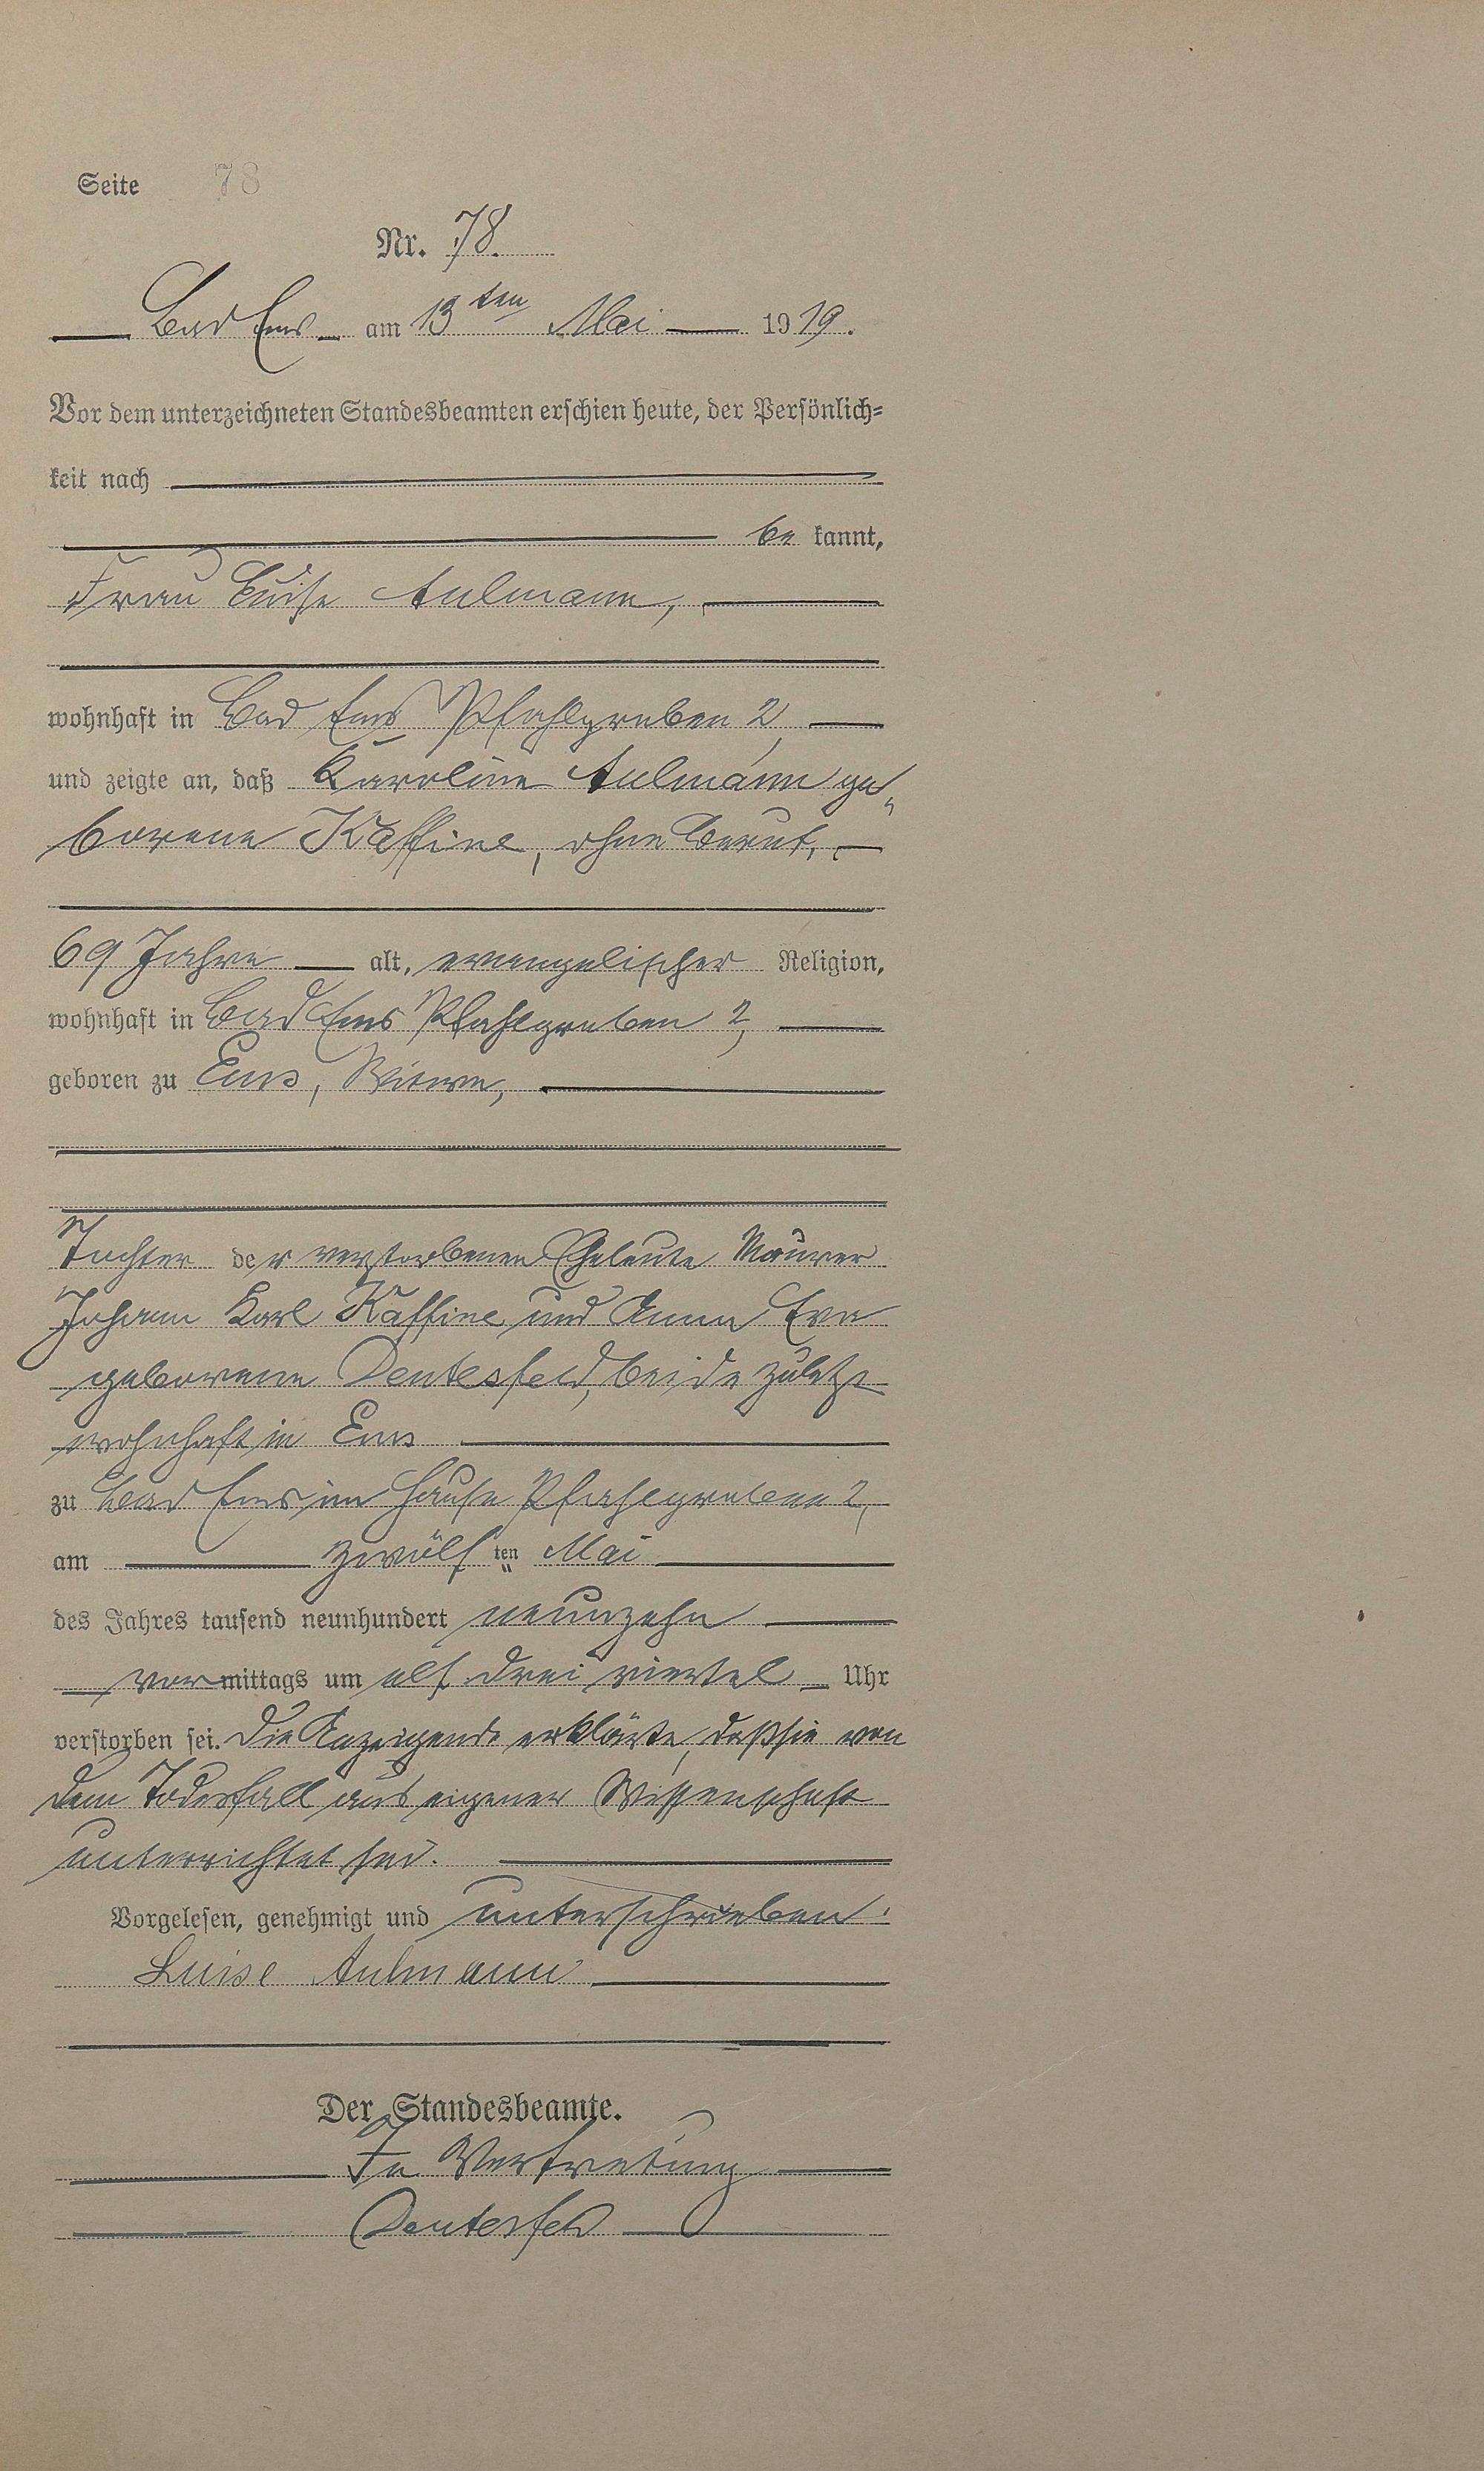 Seite 78
Nr. 78.
Bad Ems am 13ten Mai 1919.
Vor dem unterzeichneten Standesbeamten erschien heute, der Persönlich=
keit nach
be kannt,
Frau Luise Aulmann,
wohnhaft in Bad Ems Pfahlgraben 2,
und zeigte an, daß Karoline Aulmann ge„
borene Kaffine, ohne Beruf,
69 Jahre alt, evangelischer Religion,
wohnhaft in Bad Ems Pfahlgraben 2,
geboren zu Ems, Witwe,
Tochter der verstorbenen Eheleute Maurer
Johann Karl Kaffine und Anna Eva
geborene Deutesfeld, beide zuletzt
wohnhaft in Ems
zu Bad Ems im Hause Pfahlgraben 2,
am zwölf ten Mai
des Jahres tausend neunhundert neunzehn
vor mittags um elf drei viertel Uhr
verstorben sei. Die Anzeigende erklärte, daß sie von
dem Todesfall aus eigener Wissenschaft
unterrichtet sei.
Vorgelesen, genehmigt und unterschrieben.
Luise Aulmann
Der Standesbeamte.
In Vertretung
Deutesfeld